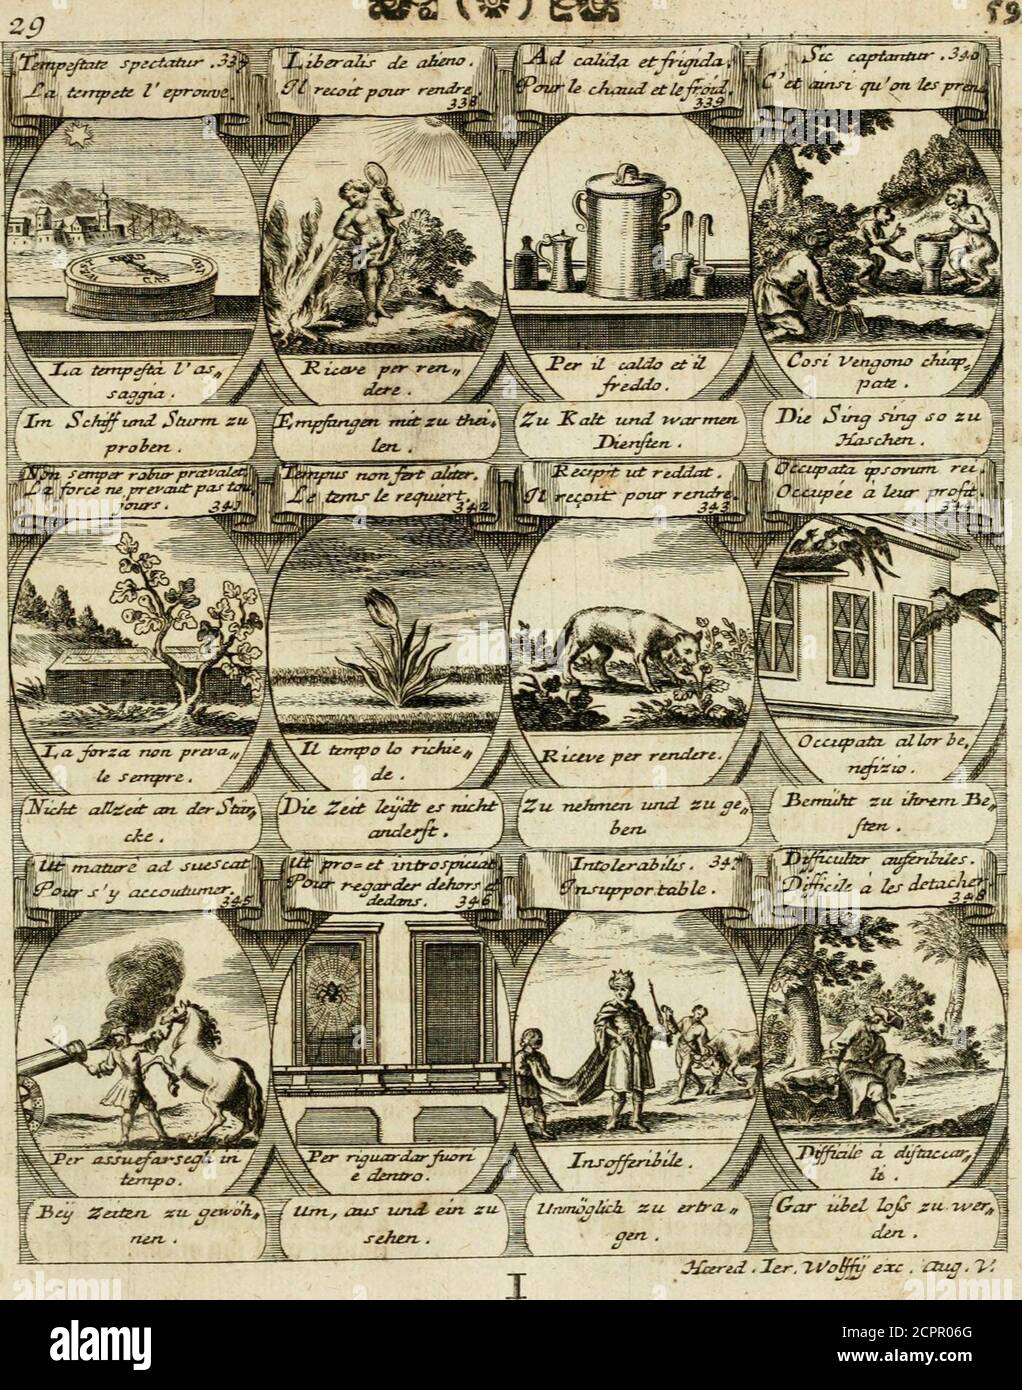 29
Tempestate spectatur . 337
La tempete l' eprouve .
La tempestà l' as„
saggia .
Im Schiff und Sturm zu
proben .
Liberalis de alieno .
Il recoit pour rendre .
338
Riceve per ren„
dere .
Empfangen mit zu thei„
len .
Ad calida et frigida .
Pour le chaud et le froid .
339
Per il caldo et il
freddo .
Zu Kalt und warmen
Diensten .
Sic captantur . 340
C' et ainsi qu' on les prend
Cosi Vengono chiap„
pate .
Die Sing sing so zu
Haschen .
Non semper robur prævalet .
La force ne prevaut pas tou
jours . 341
La forza non preva„
le sempre .
Nicht allzeit an der Stär„
cke .
Tempus non fert aliter .
Le tems le requiert .
342
Il tempo lo richie„
de .
Die Zeit leÿdt es nicht
anderst .
Recipit ut reddat .
Il reçoit pour rendre .
343
Riceve per rendere .
Zu nehmen und zu ge„
ben
Occupata ipsorum rei .
Occupée à leur profit .
344
Occupata al lor be„
nefizio .
Bemüht zu ihrem Be„
sten .
Ut maturè ad suescat
Pour s' y accoutumer .
345
Per assuefarsegli in
tempo .
Beÿ Zeiten zu gewöh„
nen .
Ut pro= et introspiciat
Pour regarder dehors et
dedans . 346
Per riguardar fuori
e dentro .
Um, aus und ein zu
sehen .
Intolerabilis . 347
Insupportable .
Insofferibile .
Unmöglich zu ertra„
gen .
Difficulter auferibiles .
Difficile à les detacher
348
Difficile à distaccar„
li .
Gar übel loss zu wer„
den .
Hæred . Ier . Wolffÿ exc . Aug . V .
I
alamy
Image ID: 2CPR06G
www.alamy.com